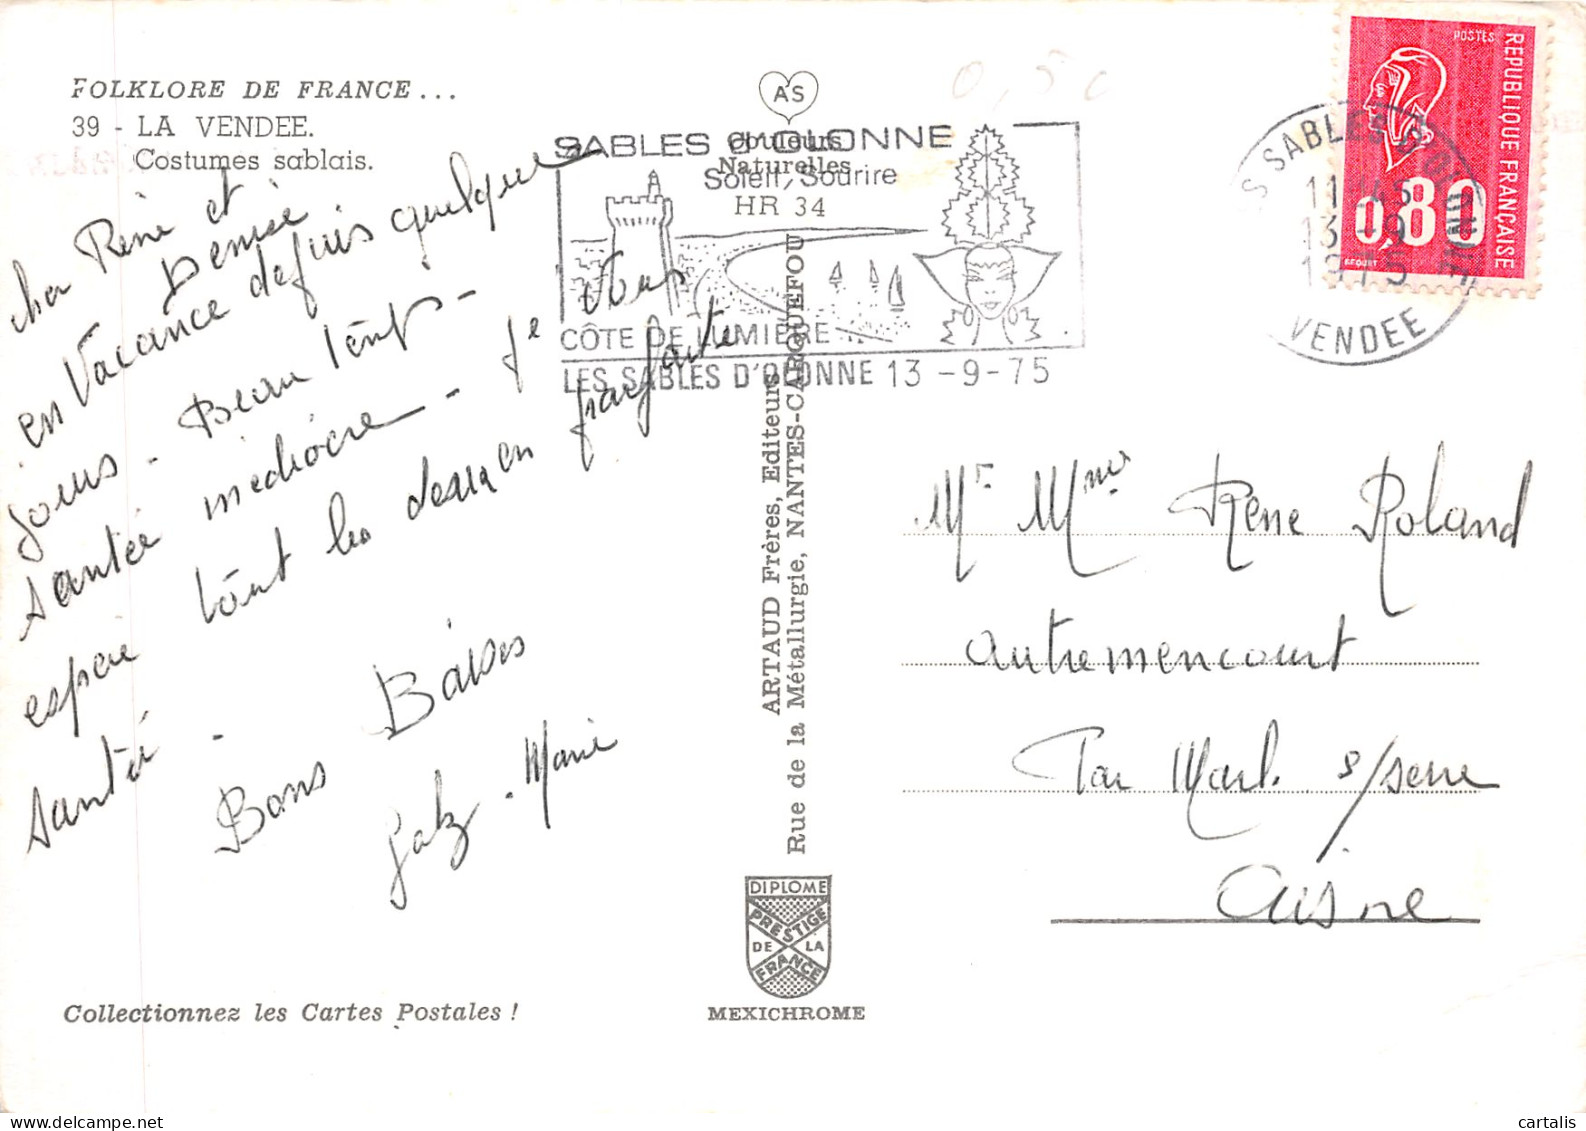 FOLKLORE DE FRANCE...
39 - LA VENDEE.
Costumes sablais.
cher Réné et
Denise
en Vacance depuis quelque
jours - Beau Temps -
santée médiocre - Je vous
espère tout les deux en parfaite
santée -
Bons Baises
Marie
AS
Couleurs
Naturelles
HR 34
SABLES D'OLONNE
Soleil, Sourire
CÔTE DE LUMIERE
LES SABLES D'OLONNE 13 -9-75
0,50
POSTES
REPUBLIQUE FRANÇAISE
0,80
BEQUET
LES SABLES D'OLONNE
11H45
13-9
1975
VENDEE
ARTAUD Frères, Editeurs
Rue de la Métallurgie, NANTES-CARQUEFOU
Mr Mme Réne Roland
Autremencourt
Par Marl. s/serre
Aisne
DIPLOME
PRESTIGE
DE LA
FRANCE
MEXICHROME
Collectionnez les Cartes Postales !
delcampe.net
cartalis